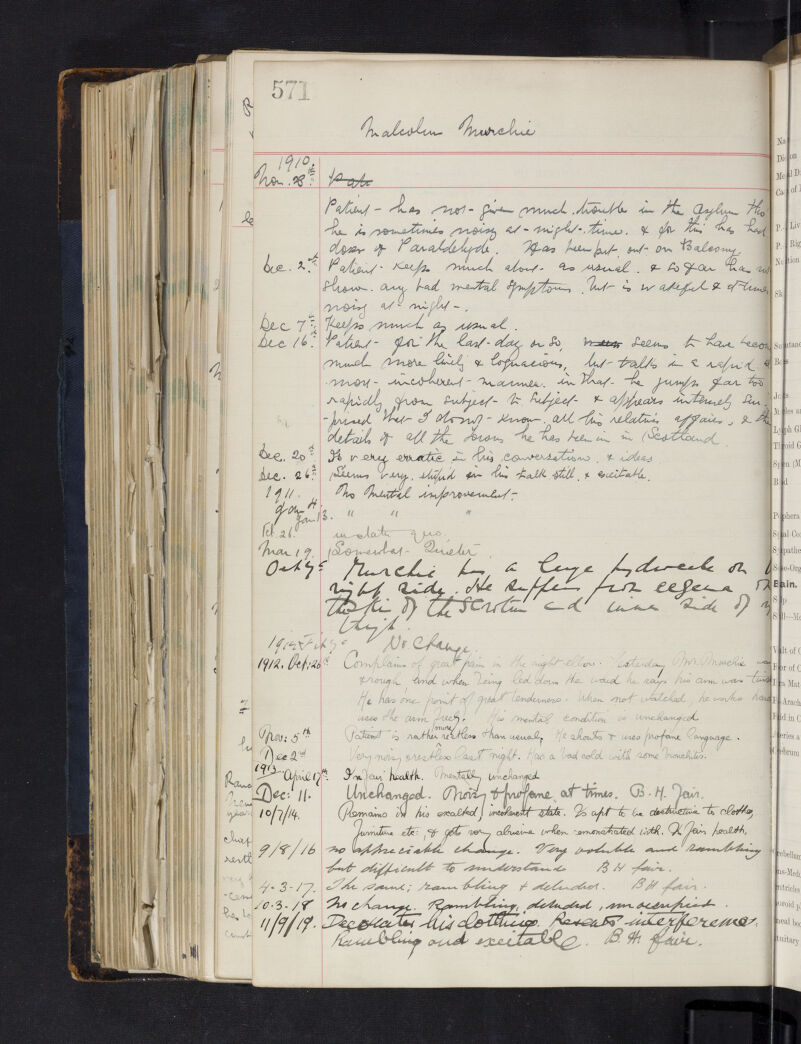 571
Malcolm Murchie
1910.
Nov. 28th. Pati
Patient - has not - given much trouble in the Asylum tho
he is sometimes noisy at - night - time. & for this has had
doses of Paraldehyde. Has been put out - on Balcony.
Dec. 2nd. Patient - Keeps much about - as usual. & so far has n
shown any bad mental symptoms. but is wakeful & at times
noisy at - night -.
Dec 7th. Keeps much as usual.
Dec 16th. Patient - for the last - day or so, seems to have beco
much more lively & loquacious, but - talks in a rapid &
most - incoherent - manner. in that - he jumps far too
rapidly from subject - to subject - & appears intensely sur-
-prised that - I do not - know all his relatives affairs, & the
details of all the towns he has been in in Scotland.
Dec. 20th Is very erratic in his conversations. & ideas
Dec. 26th. Seems very stupid in his talk still. & excitable.
1911.
Jan 4. No Mental improvement -.
Jan 13. " " "
Feb. 26. in statu quo.
Mar 19. Somewhat - Quieter.
Oct 7th Murchie has a large hydrocele on
right side. He suffers from eczema on
the skin of the scrotum and inner side of
thigh.
1912 Feby No Change.
1912. Oct: 26th Complains of great pain in the right elbow. Yesterday Mr Murchie was
rough, and when being led down the ward he says his arm was twis
He has one point of great tenderness. When not watched, he works hard
uses the arm freely. His mental condition is unchanged
Nov: 5th Patient is rather more restless than usual, He shouts & uses profane language.
Dec 2nd Very noisy & restless last night. Has a bad cold with some bronchitis.
1913 April 17th. In fair health. Mentally unchanged
Dec: 11. Unchanged. Noisy & profane at times. B. H. Fair.
10/7/14. Remains in his exalted, incoherent state. Is apt to be destructive to clothes,
furniture etc, & gets very abusive when remonstrated with. In fair health.
9/8/16 no appreciable change. Very voluble and rambling
but difficult to understand B H fair.
4-3-17. The same; rambling & deluded. B H fair.
10.3.18 No change. Rambling, deluded, unoccupied.
11/9/19. Decorates his clothing. Resents interference.
Rambling and excitable. B. H. fair.